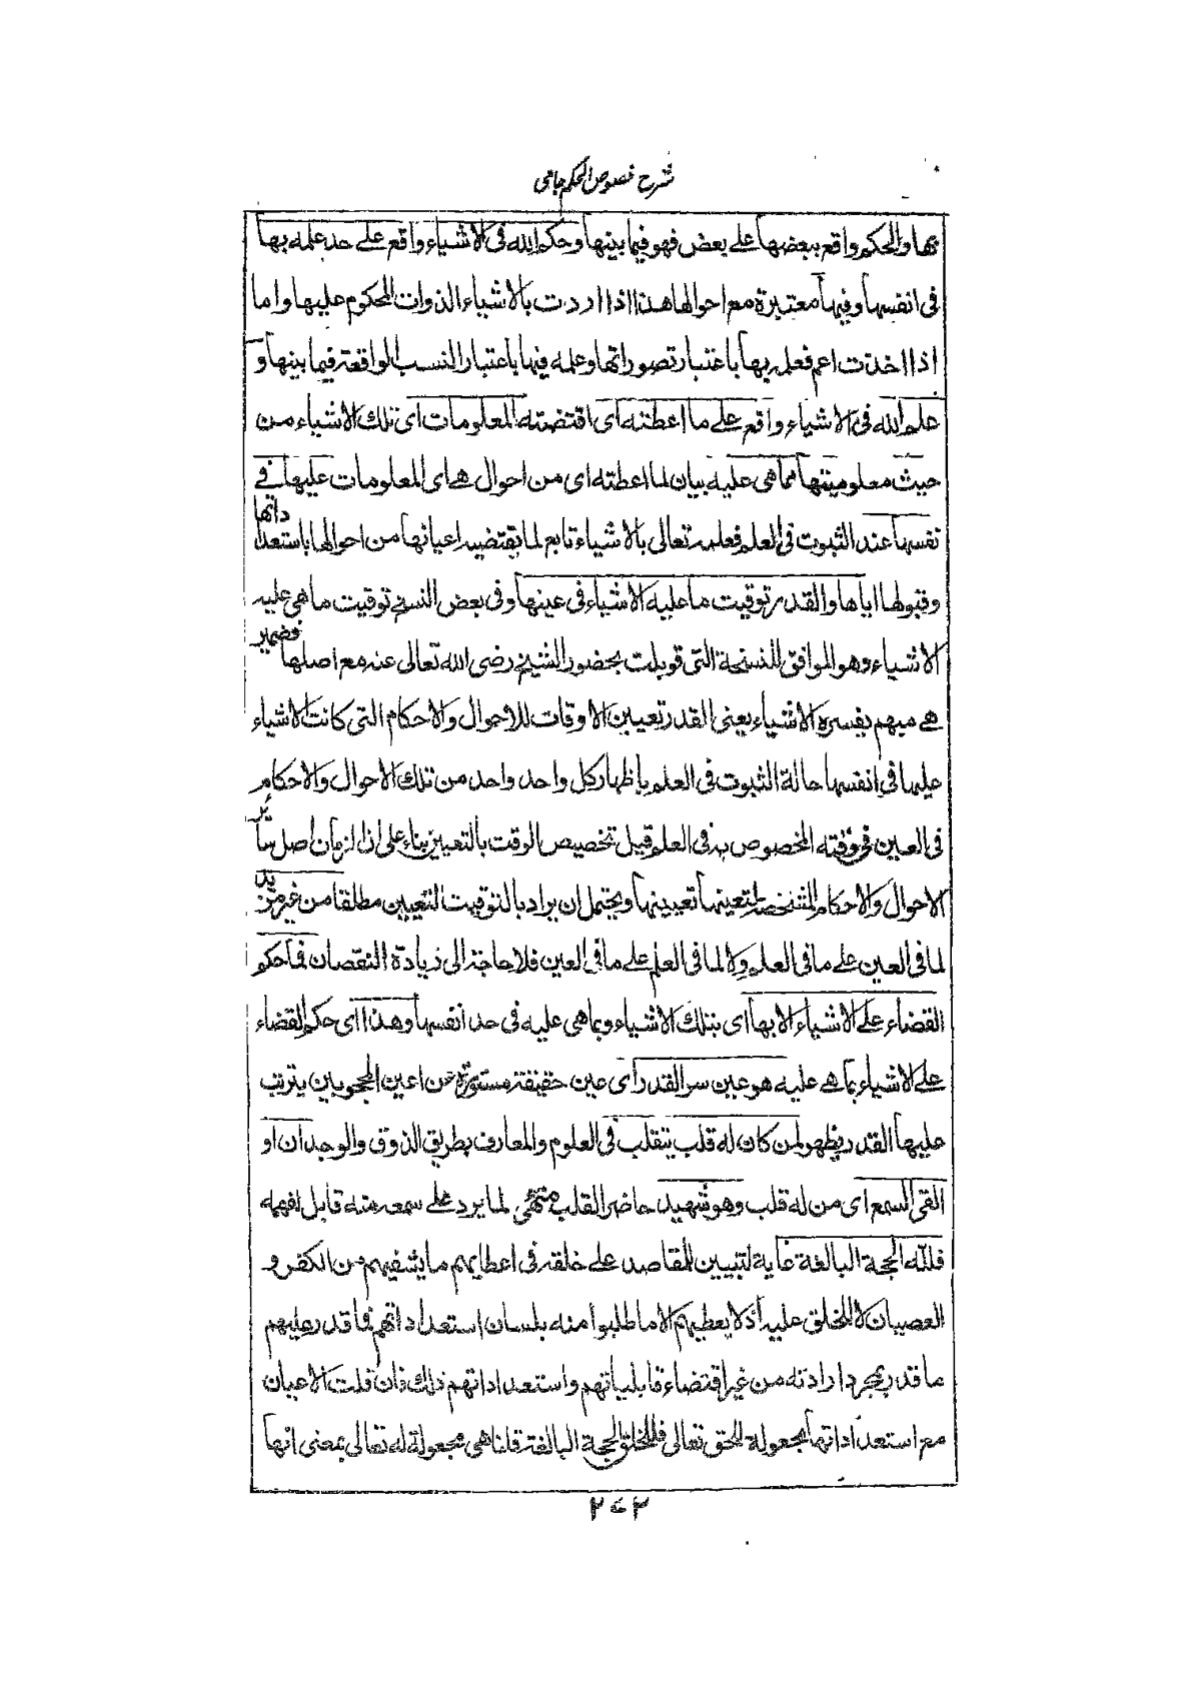 شرح فصوص الحكم جامی
بها والحكم واقع ببعضها على بعض فهو فيما بينها وحكم الله فى الاشياء واقع على حد علمه بها
فى انفسها وفيها معتبرة مع احوالها هذا اذا اردت بالاشياء الذوات المحكوم عليها واما
اذا اخذت اعم فعلمه بها باعتبار تصوراتها وعلمه فيها باعتبار النسب الواقعة فيما بينها و
علم الله فى الاشياء واقع على ما اعطته اى اقتضته المعلومات اى تلك الاشياء من
حيث معلوميتها مما هى عليه بيان لما اعطته اى من احوال هى اى المعلومات عليها فى
نفسها عند الثبوت فى العلم فعلمه تعالى بالاشياء تابع لما يقتضيه اعيانها من احوالها باستعداداتها
وقبولها اياها والقدر توقيت ما عليه الاشياء فى عينها وفى بعض النسخ توقيت ما هى عليه
الاشياء وهو الموافق للنسخة التى قوبلت بحضور الشيخ رضى الله تعالى عنه مع اصلها فضمير
هى مبهم يفسره الاشياء يعنى القدر تعيين الاوقات للاحوال والاحكام التى كانت الاشياء
عليها فى انفسها حالة الثبوت فى العلم باظهار كل واحد واحد من تلك الاحوال والاحكام
فى العين فى وقته المخصوص به فى العلم قيل تخصيص الوقت بالتعيين بناء على ان الزمان اصل سائر
الاحوال والاحكام المشخصة لتعينها تعيينها ويحتمل ان يراد بالتوقيت التعيين مطلقا من غير مزيد
لما فى العين على ما فى العلم ولا لما فى العلم على ما فى العين فلا حاجة الى زيادة النقصان فما حكم
القضاء على الاشياء الا بها اى بتلك الاشياء وبما هى عليه فى حد انفسها وهذا اى حكم القضاء
على الاشياء بما هى عليه هو عين سر القدر اى عين حقيقة مستورة عن اعين المحجوبين يترتب
عليها القدر يظهر لمن كان له قلب يتقلب فى العلوم والمعارف بطريق الذوق والوجدان او
القى السمع اى من له قلب وهو شهيد حاضر القلب متهئ لما يرد على سمعه منه قابل لفهمه
فلله الحجة البالغة غاية لتبيين المقاصد على خلقه فى اعطايهم ما يشقيهم من الكفر و
العصيان لا للخلق عليه اذ لا يعطيهم الا ما طلبوا منه بلسان استعداداتهم فما قدر عليهم
ما قدر بمجرد ارادته من غير اقتضاء قابلياتهم واستعداداتهم ذلك فان قلت الاعيان
مع استعداداتها مجعولة للحق تعالى فللخلق الحجة البالغة قلنا هى مجعولة له تعالى بمعنى انها